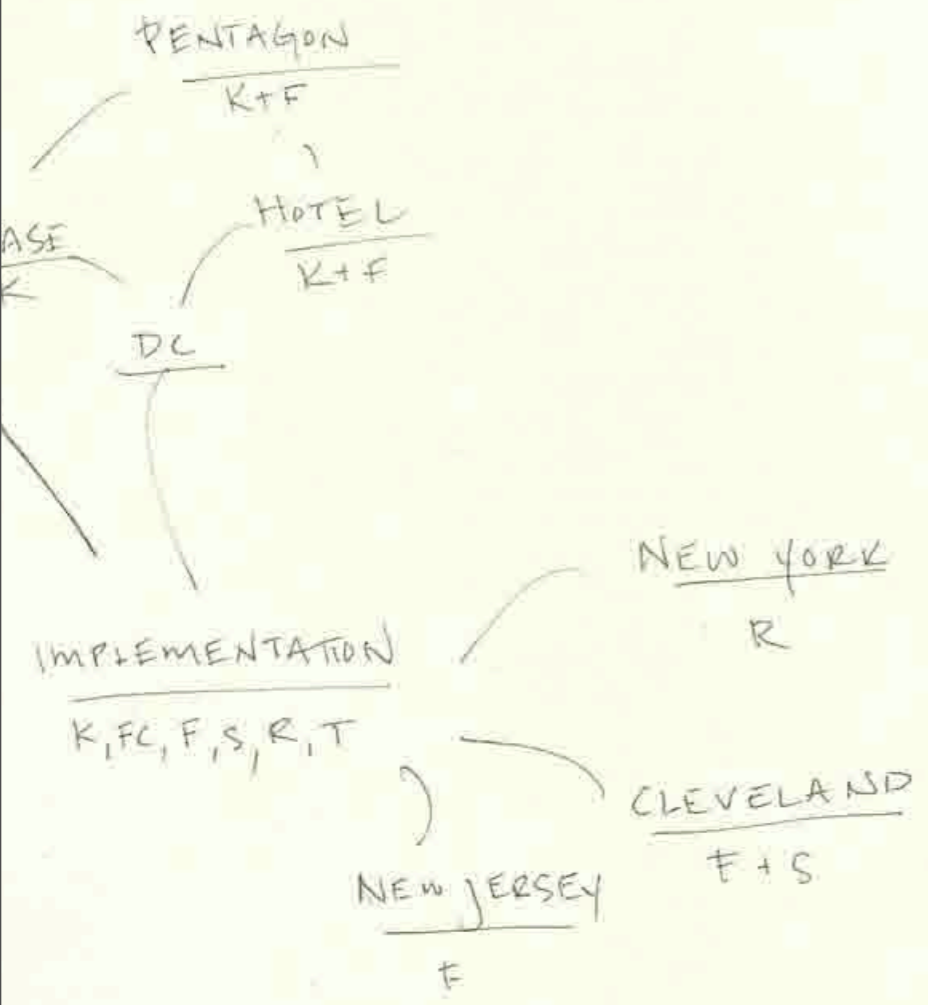 PENTAGON
K+F
HOTEL
K+F
ASE
K
DC
NEW YORK
R
IMPLEMENTATION
K, FC, F, S, R, T
CLEVELAND
F + S
NEW JERSEY
F